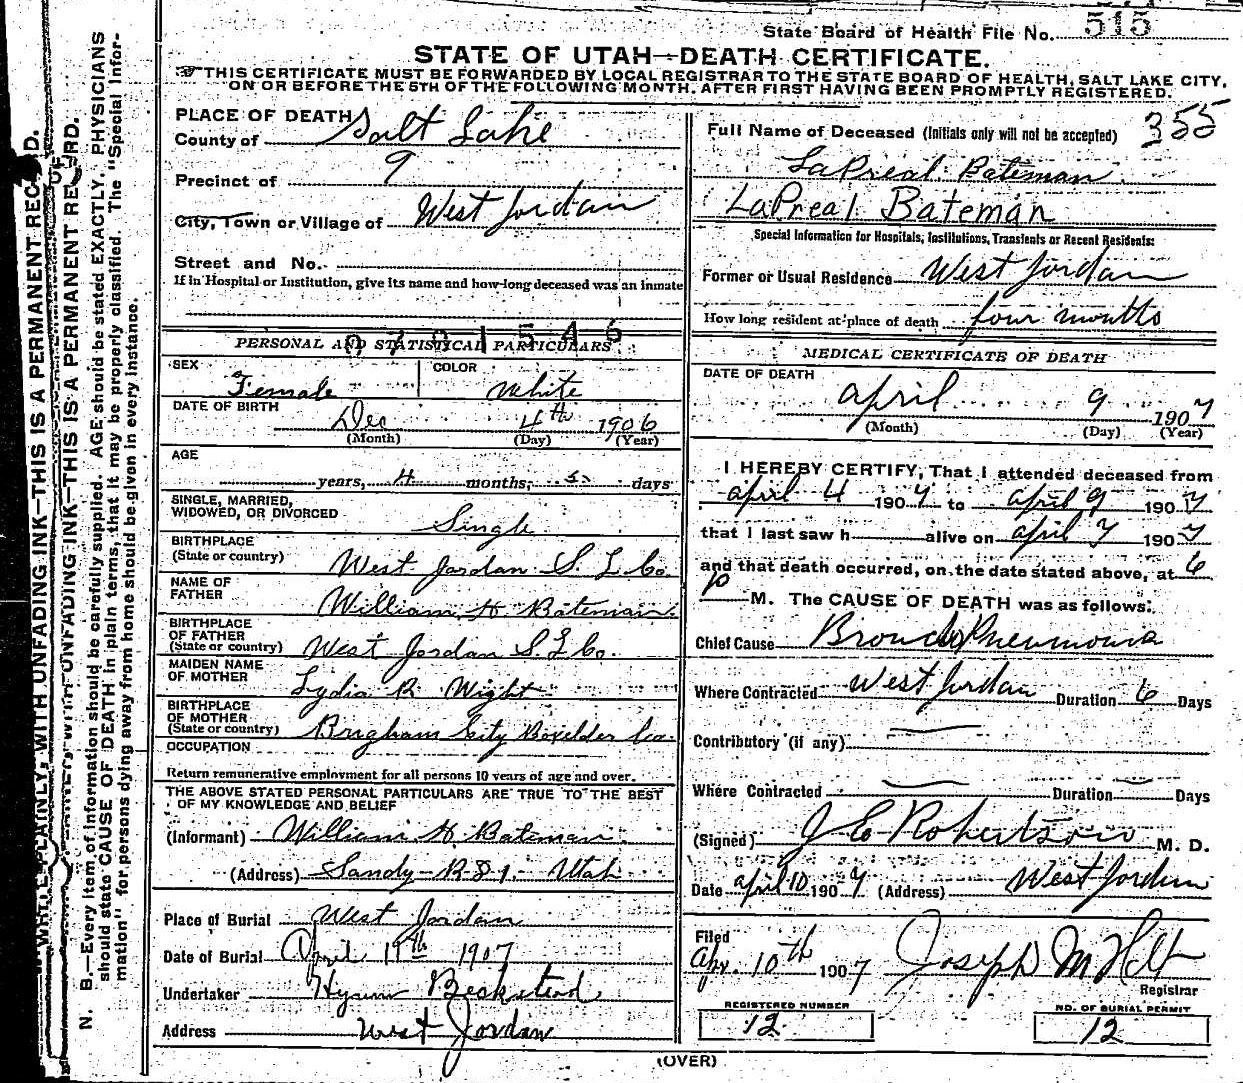 State Board of Health File No. 515
STATE OF UTAH—DEATH CERTIFICATE.
THIS CERTIFICATE MUST BE FORWARDED BY LOCAL REGISTRAR TO THE STATE BOARD OF HEALTH, SALT LAKE CITY,
ON OR BEFORE THE 5TH OF THE FOLLOWING MONTH, AFTER FIRST HAVING BEEN PROMPTLY REGISTERED.
PLACE OF DEATH
County of Salt Lake
Precinct of 9
City, Town or Village of West Jordan
Street and No.
If in Hospital or Institution, give its name and how long deceased was an inmate
0701546
PERSONAL AND STATISTICAL PARTICULARS
SEX Female
COLOR White
DATE OF BIRTH Dec 4th 1906
(Month) (Day) (Year)
AGE
years, 4 months, 5 days
SINGLE, MARRIED,
WIDOWED, OR DIVORCED Single
BIRTHPLACE
(State or country) West Jordan S. L. Co.
NAME OF
FATHER William H Bateman
BIRTHPLACE
OF FATHER
(State or country) West Jordan S. L. Co.
MAIDEN NAME
OF MOTHER Lydia R Wight
BIRTHPLACE
OF MOTHER
(State or country) Brigham City Boxelder Co.
OCCUPATION
Return remunerative employment for all persons 10 years of age and over.
THE ABOVE STATED PERSONAL PARTICULARS ARE TRUE TO THE BEST
OF MY KNOWLEDGE AND BELIEF
(Informant) William H. Bateman
(Address) Sandy Utah
Place of Burial West Jordan
Date of Burial April 1907
Undertaker Hyrum Beckstead
Address West Jordan
355
Full Name of Deceased (Initials only will not be accepted)
LaPreal Bateman
LaPreal Bateman
Special Information for Hospitals, Institutions, Transients or Recent Residents:
Former or Usual Residence West Jordan
How long resident at place of death four months
MEDICAL CERTIFICATE OF DEATH
DATE OF DEATH
April 9 1907
(Month) (Day) (Year)
I HEREBY CERTIFY, That I attended deceased from
april 4 1907 to april 9 1907
that I last saw h alive on april 7 1907
and that death occurred, on the date stated above, at 6
p M. The CAUSE OF DEATH was as follows:
Chief Cause Broncho Pneumonia
Where Contracted West Jordan Duration 6 Days
Contributory (if any)
Where Contracted Duration Days
(Signed) J E Robertson M. D.
Date april 10 1907 (Address) West Jordan
Filed
Apr. 10th 1907 Joseph M Holt
Registrar
REGISTERED NUMBER
12
NO. OF BURIAL PERMIT
12
(OVER)
WRITE PLAINLY, WITH UNFADING INK—THIS IS A PERMANENT RECORD.
UNFADING INK—THIS IS A PERMANENT RECORD.
N. B.—Every item of information should be carefully supplied. AGE should be stated EXACTLY. PHYSICIANS
should state CAUSE OF DEATH in plain terms, that it may be properly classified. The "Special Infor-
mation" for persons dying away from home should be given in every instance.